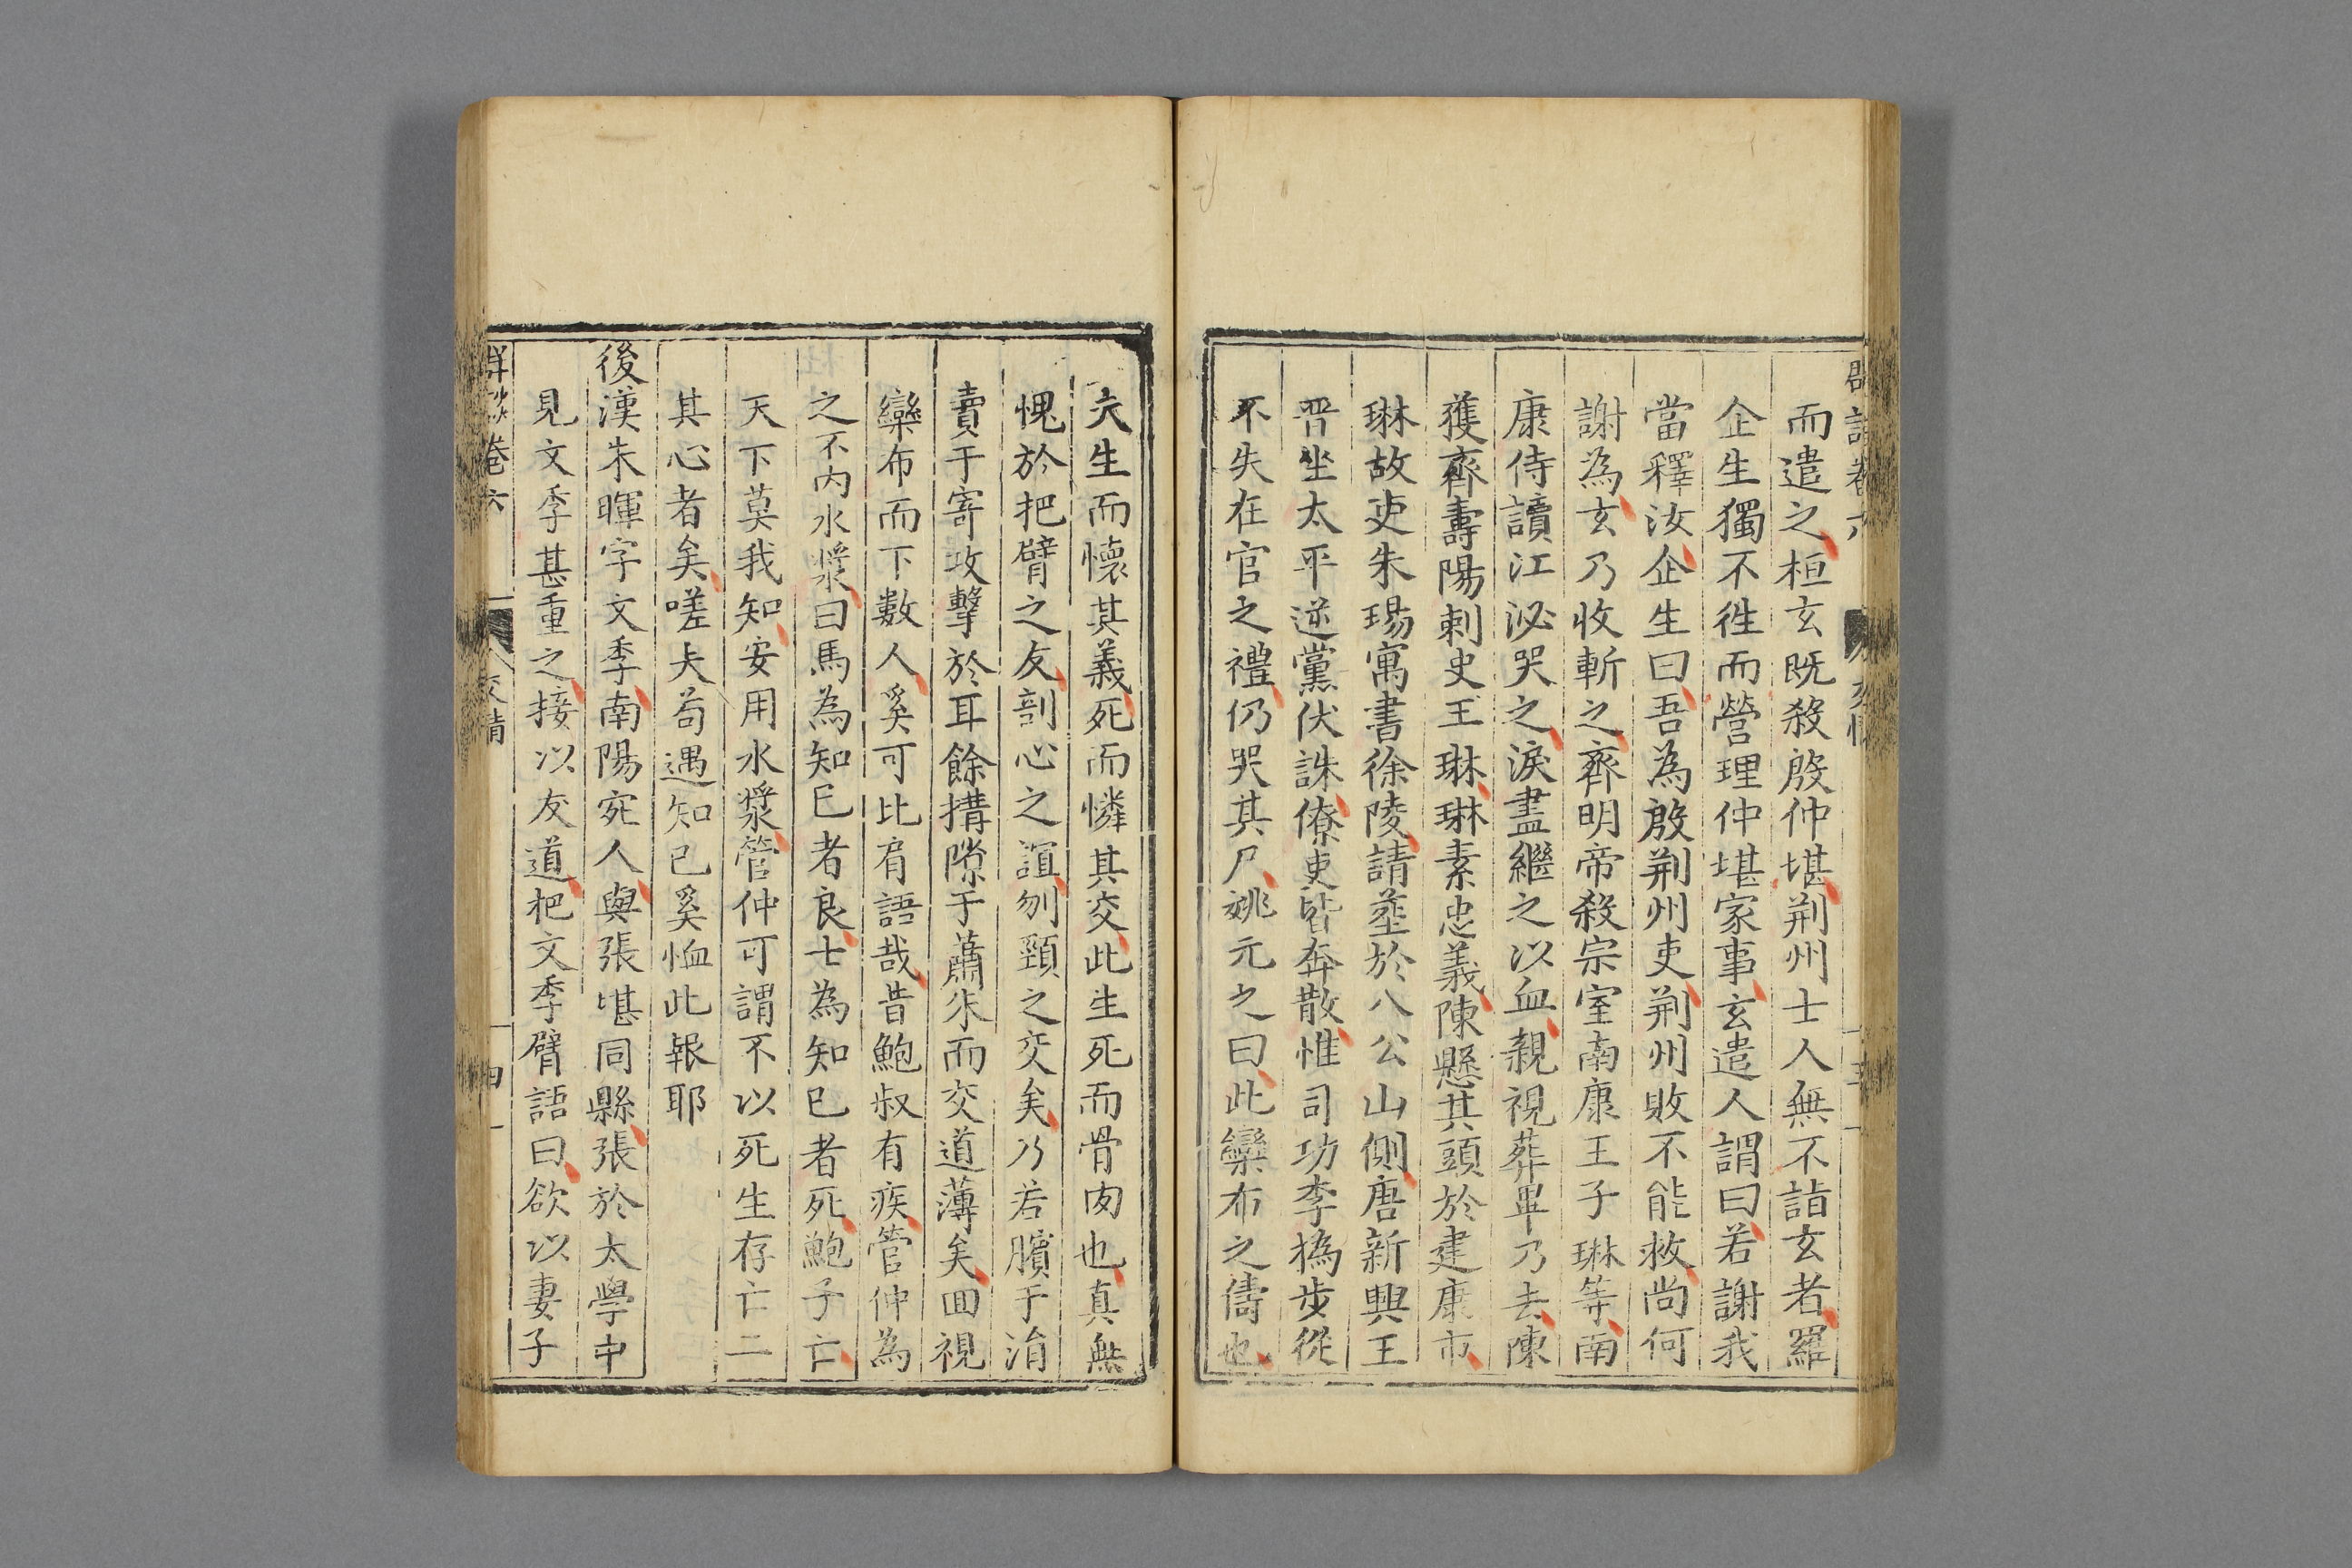 而遣之桓玄既殺殷仲堪荆州士人無不詣玄者羅
企生獨不徃而營理仲堪家事玄遣人謂曰若謝我
當釋汝企生曰吾為殷荆州吏荆州敗不能救尚何
謝為玄乃收斬之齊明帝殺宗室南康王子琳等南
康侍讀江泌哭之淚盡繼之以血親視葬畢乃去陳
獲齊壽陽刺史王琳琳素忠義陳懸其頭於建康市
琳故吏朱瑒寓書徐陵請塟於八公山側唐新興王
晋坐太平逆黨伏誅僚吏皆奔散惟司功李撝步從
不失在官之禮仍哭其尸姚元之曰此欒布之儔也
夫生而懷其義死而憐其交此生死而骨肉也真無
愧於把臂之友剖心之誼刎頸之交矣乃若臏于涓
賣于寄攻擊於耳餘搆隙于蕭朱而交道薄矣囬視
欒布而下數人奚可比肩語哉昔鮑叔有疾管仲為
之不内水漿曰馬為知己者良士為知己者死鮑子亡
天下莫我知安用水漿管仲可謂不以死生存亡二
其心者矣嗟夫苟遇知己奚恤此報耶
後漢朱暉字文季南陽宛人與張堪同縣張於太學中
見文季甚重之接以友道把文季臂語曰欲以妻子
卷六
交情
四